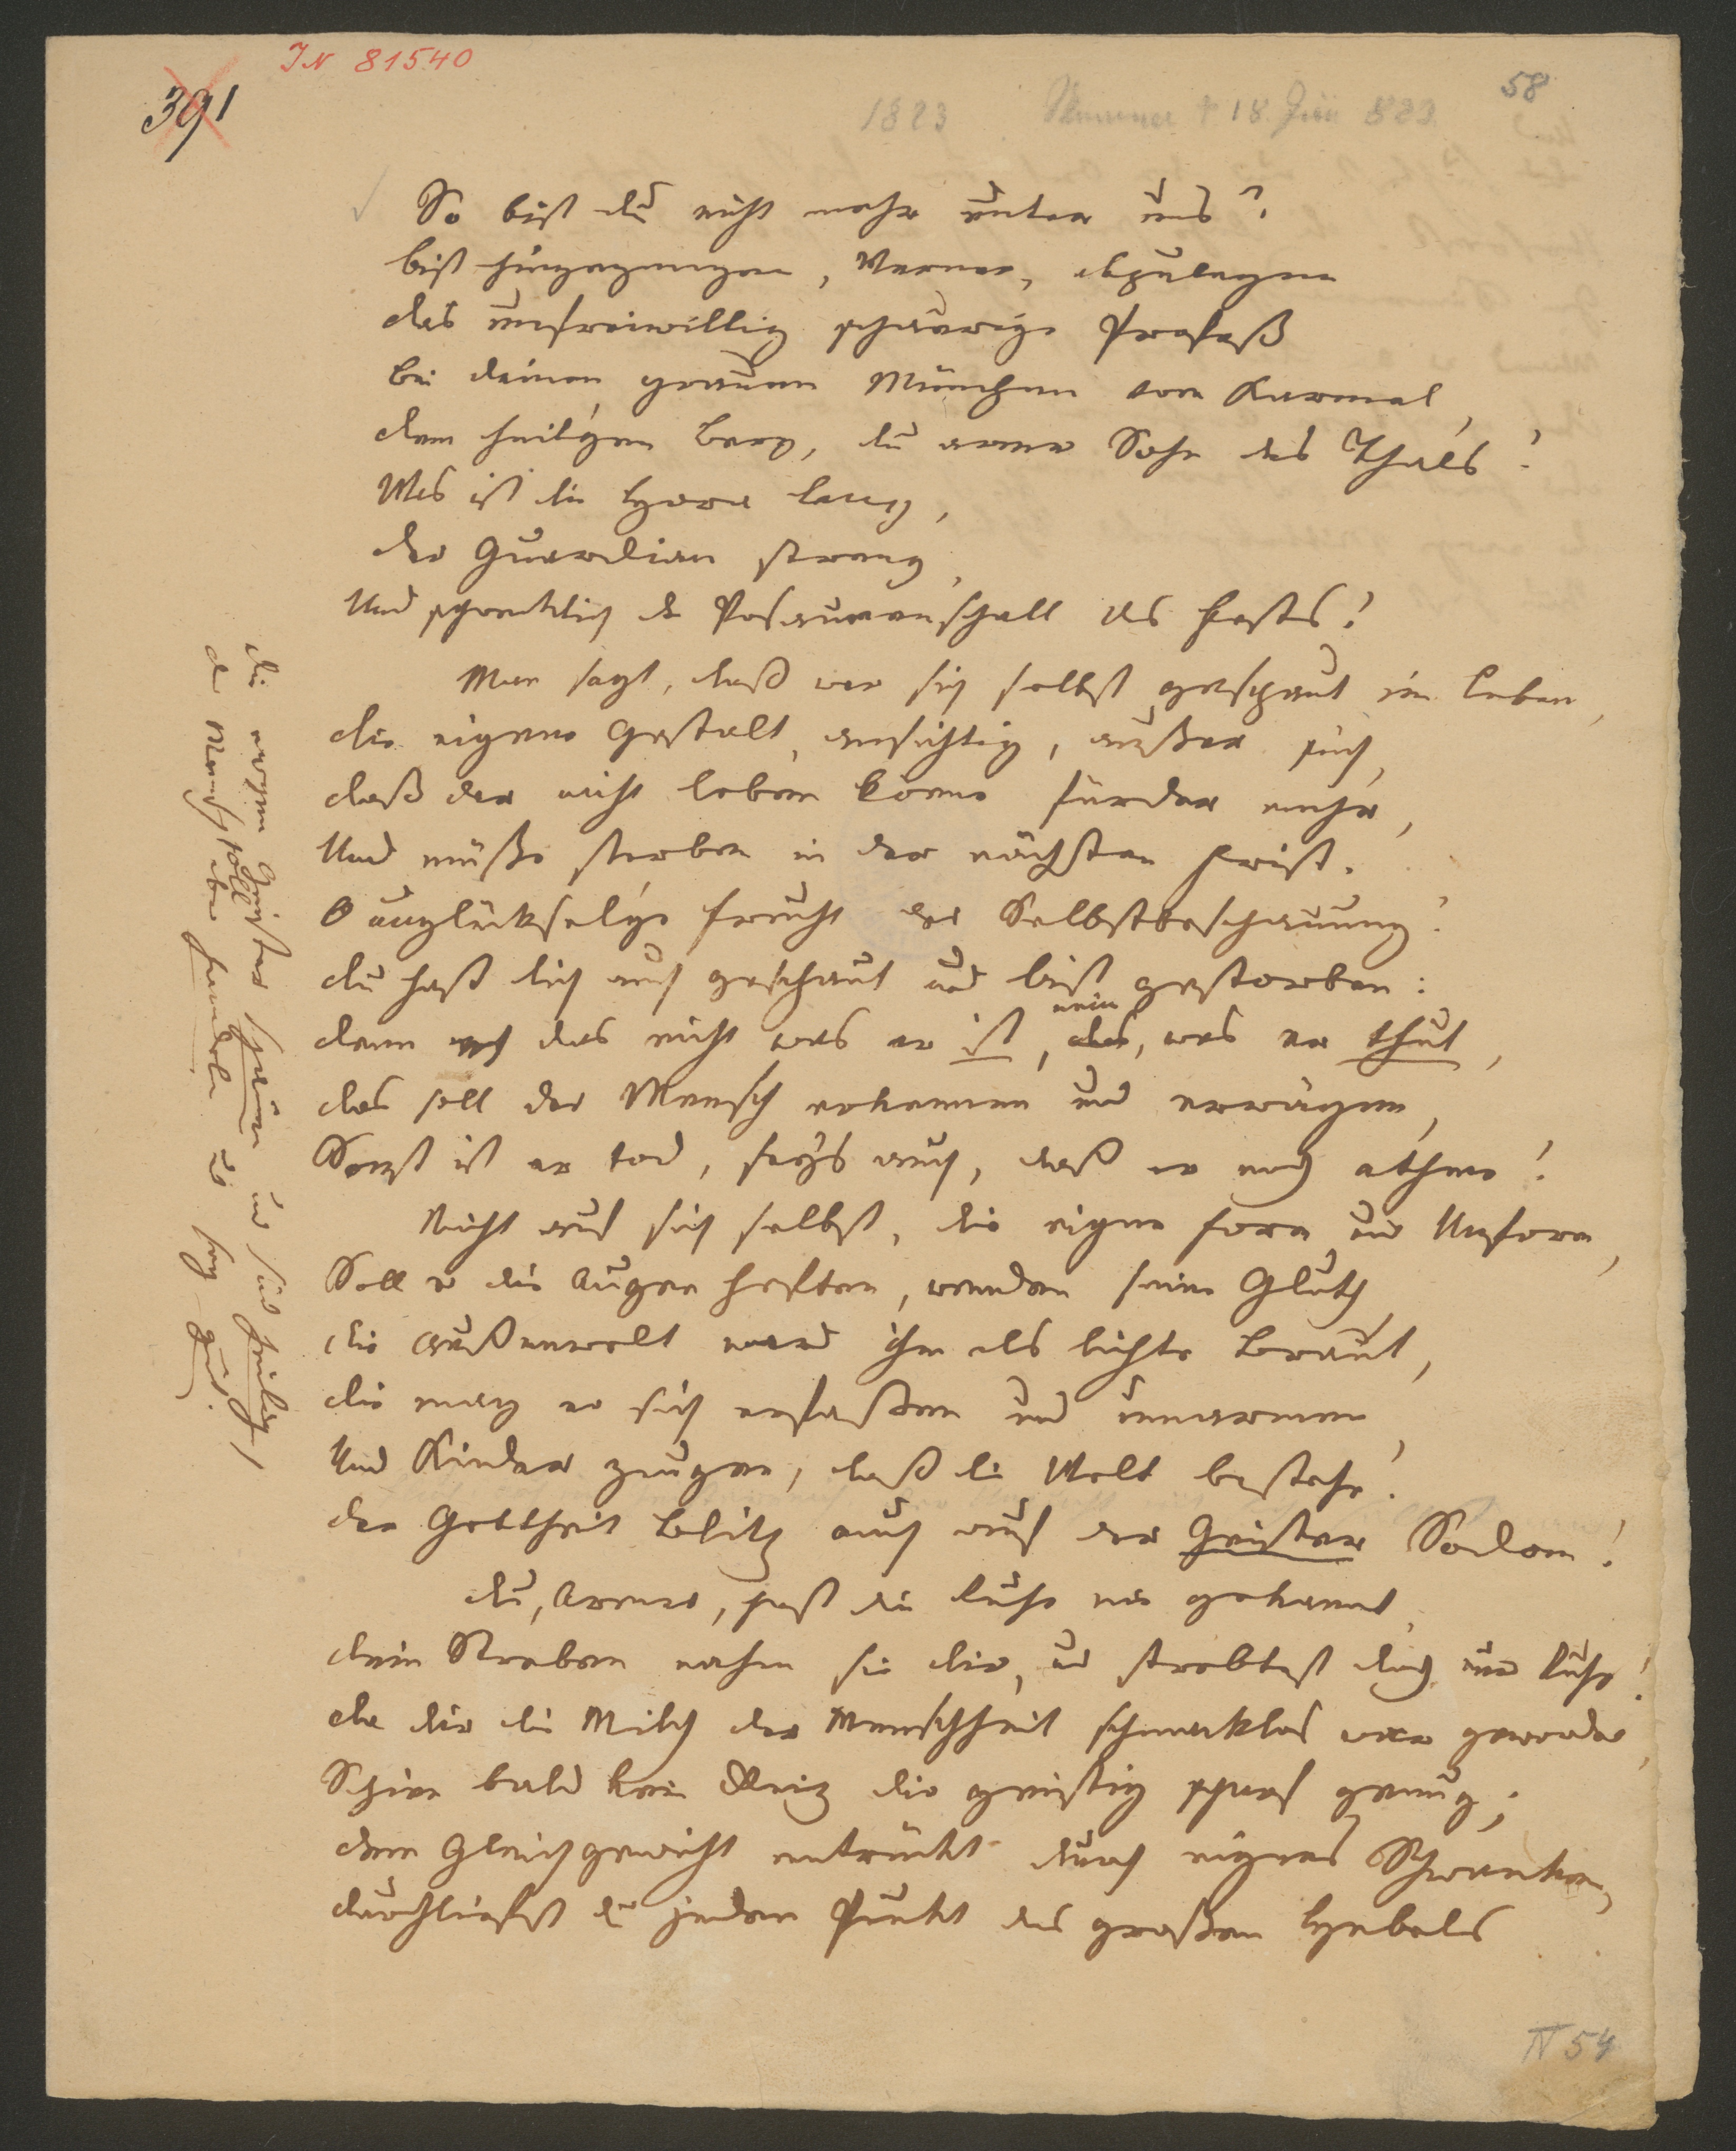 IN 81540
391
58
1823 18. Juni 823.
So bist du nicht mehr unter uns?
bist hingegangen, Werner, abzulegen
das unfreiwillig schaurige Profeß
bei deinen grauen München vom Karmel,
dem heil'gen Berg, du armer Sohn des Thals?
Was ist die Hora lang,
der Guardian streng,
Und schrecklich der Posaunenschall des Fests!
Man sagt, daß wer sich selbst geschaut im Leben,
die eigene Gestalt, ansichtig, außer sich,
daß der nicht leben könne fürder mehr,
Und müße sterben in der nächsten Frist.
O unglückselge Frucht der Selbstbeschauung!
du hast dich auch geschaut und bist gestorben:
denn das nicht was er ist, nein das, was er thut,
das soll der Mensch erkennen und erwägen,
Sonst ist er tod, sey's auch, daß er noch athme!
Nicht auf sich selbst, die eigne Form und Unform,
Soll er die Augen heften, wenden seine Gluth,
die Außenwelt ward ihm als lichte Braut,
die mag er sich erfassen und umarmen,
Und Kinder zeugen, daß die Welt bestehe.
der Gottheit Blitz auch auf der Geister Sodom!
du, Armer, hast die Ruhe nie gekannt,
dein Streben nahm sie dir, und strebtest doch um Ruhe!
da dir die Milch der Menschheit schmacklos war geworden,
Schien bald kein Reitz dir geistig scharf genug;
dem Gleichgewicht entrückt durch eignes Schwanken,
durchliefst du jeden Punkt des großen Hebels
die ewgen Geister schaun und sind heilig,
der Mensch soll aber handeln und sey gut.
N 54